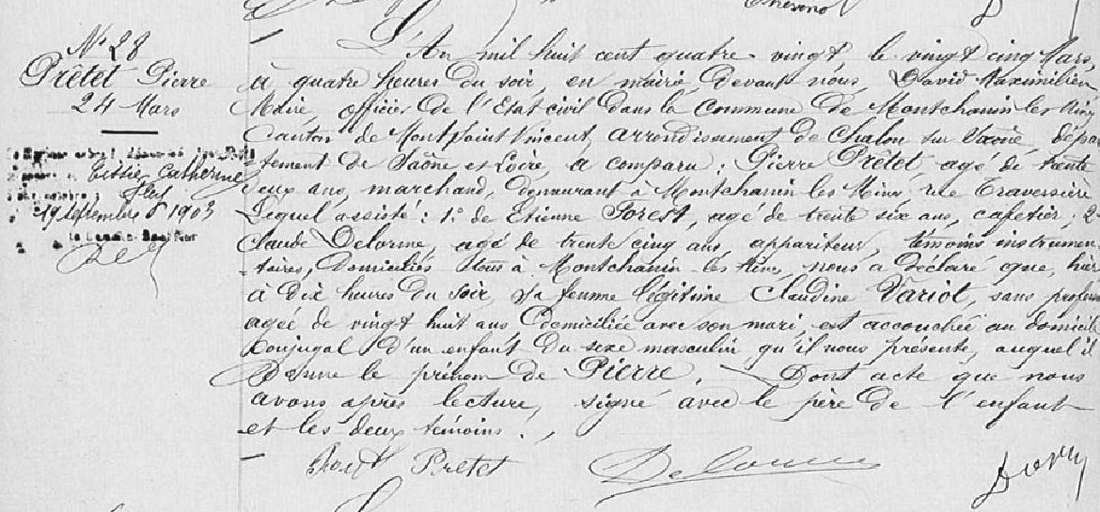 N° 28
Prêtet Pierre
24 Mars
Catherine
19 septembre 1903
L'An mil huit cent quatre-vingt le vingt cinq Mars,
à quatre heures du soir, en mairie, devant nous, David Maximilien
Maire, officier de l'Etat civil dans la commune de Montchanin les Mines
Canton de Montsaint Vincent, arrondissement de Chalon sur Saône, dépar
tement de Saône et Loire, a comparu : Pierre Prêtet, agé de trente
deux ans, marchand, demeurant à Montchanin les Mines rue Traversière
Lequel assisté : 1° de Etienne Forest, agé de trente six ans, cafetier ; 2°
Claude Delorme, agé de trente cinq ans, appariteur, témoins instrumen
-taires, domiciliés tous à Montchanin-les-Mines, nous a déclaré que, hier
à dix heures du soir, sa femme légitime Claudine Variot, sans profession
agée de vingt huit ans domiciliée avec son mari, est accouchée au domicile
conjugal d'un enfant du sexe masculin qu'il nous présente, auquel il
donne le prénom de Pierre. Dont acte que nous
avons après lecture, signé avec le père de l'enfant
et les deux témoins.
Prêtet Delorme